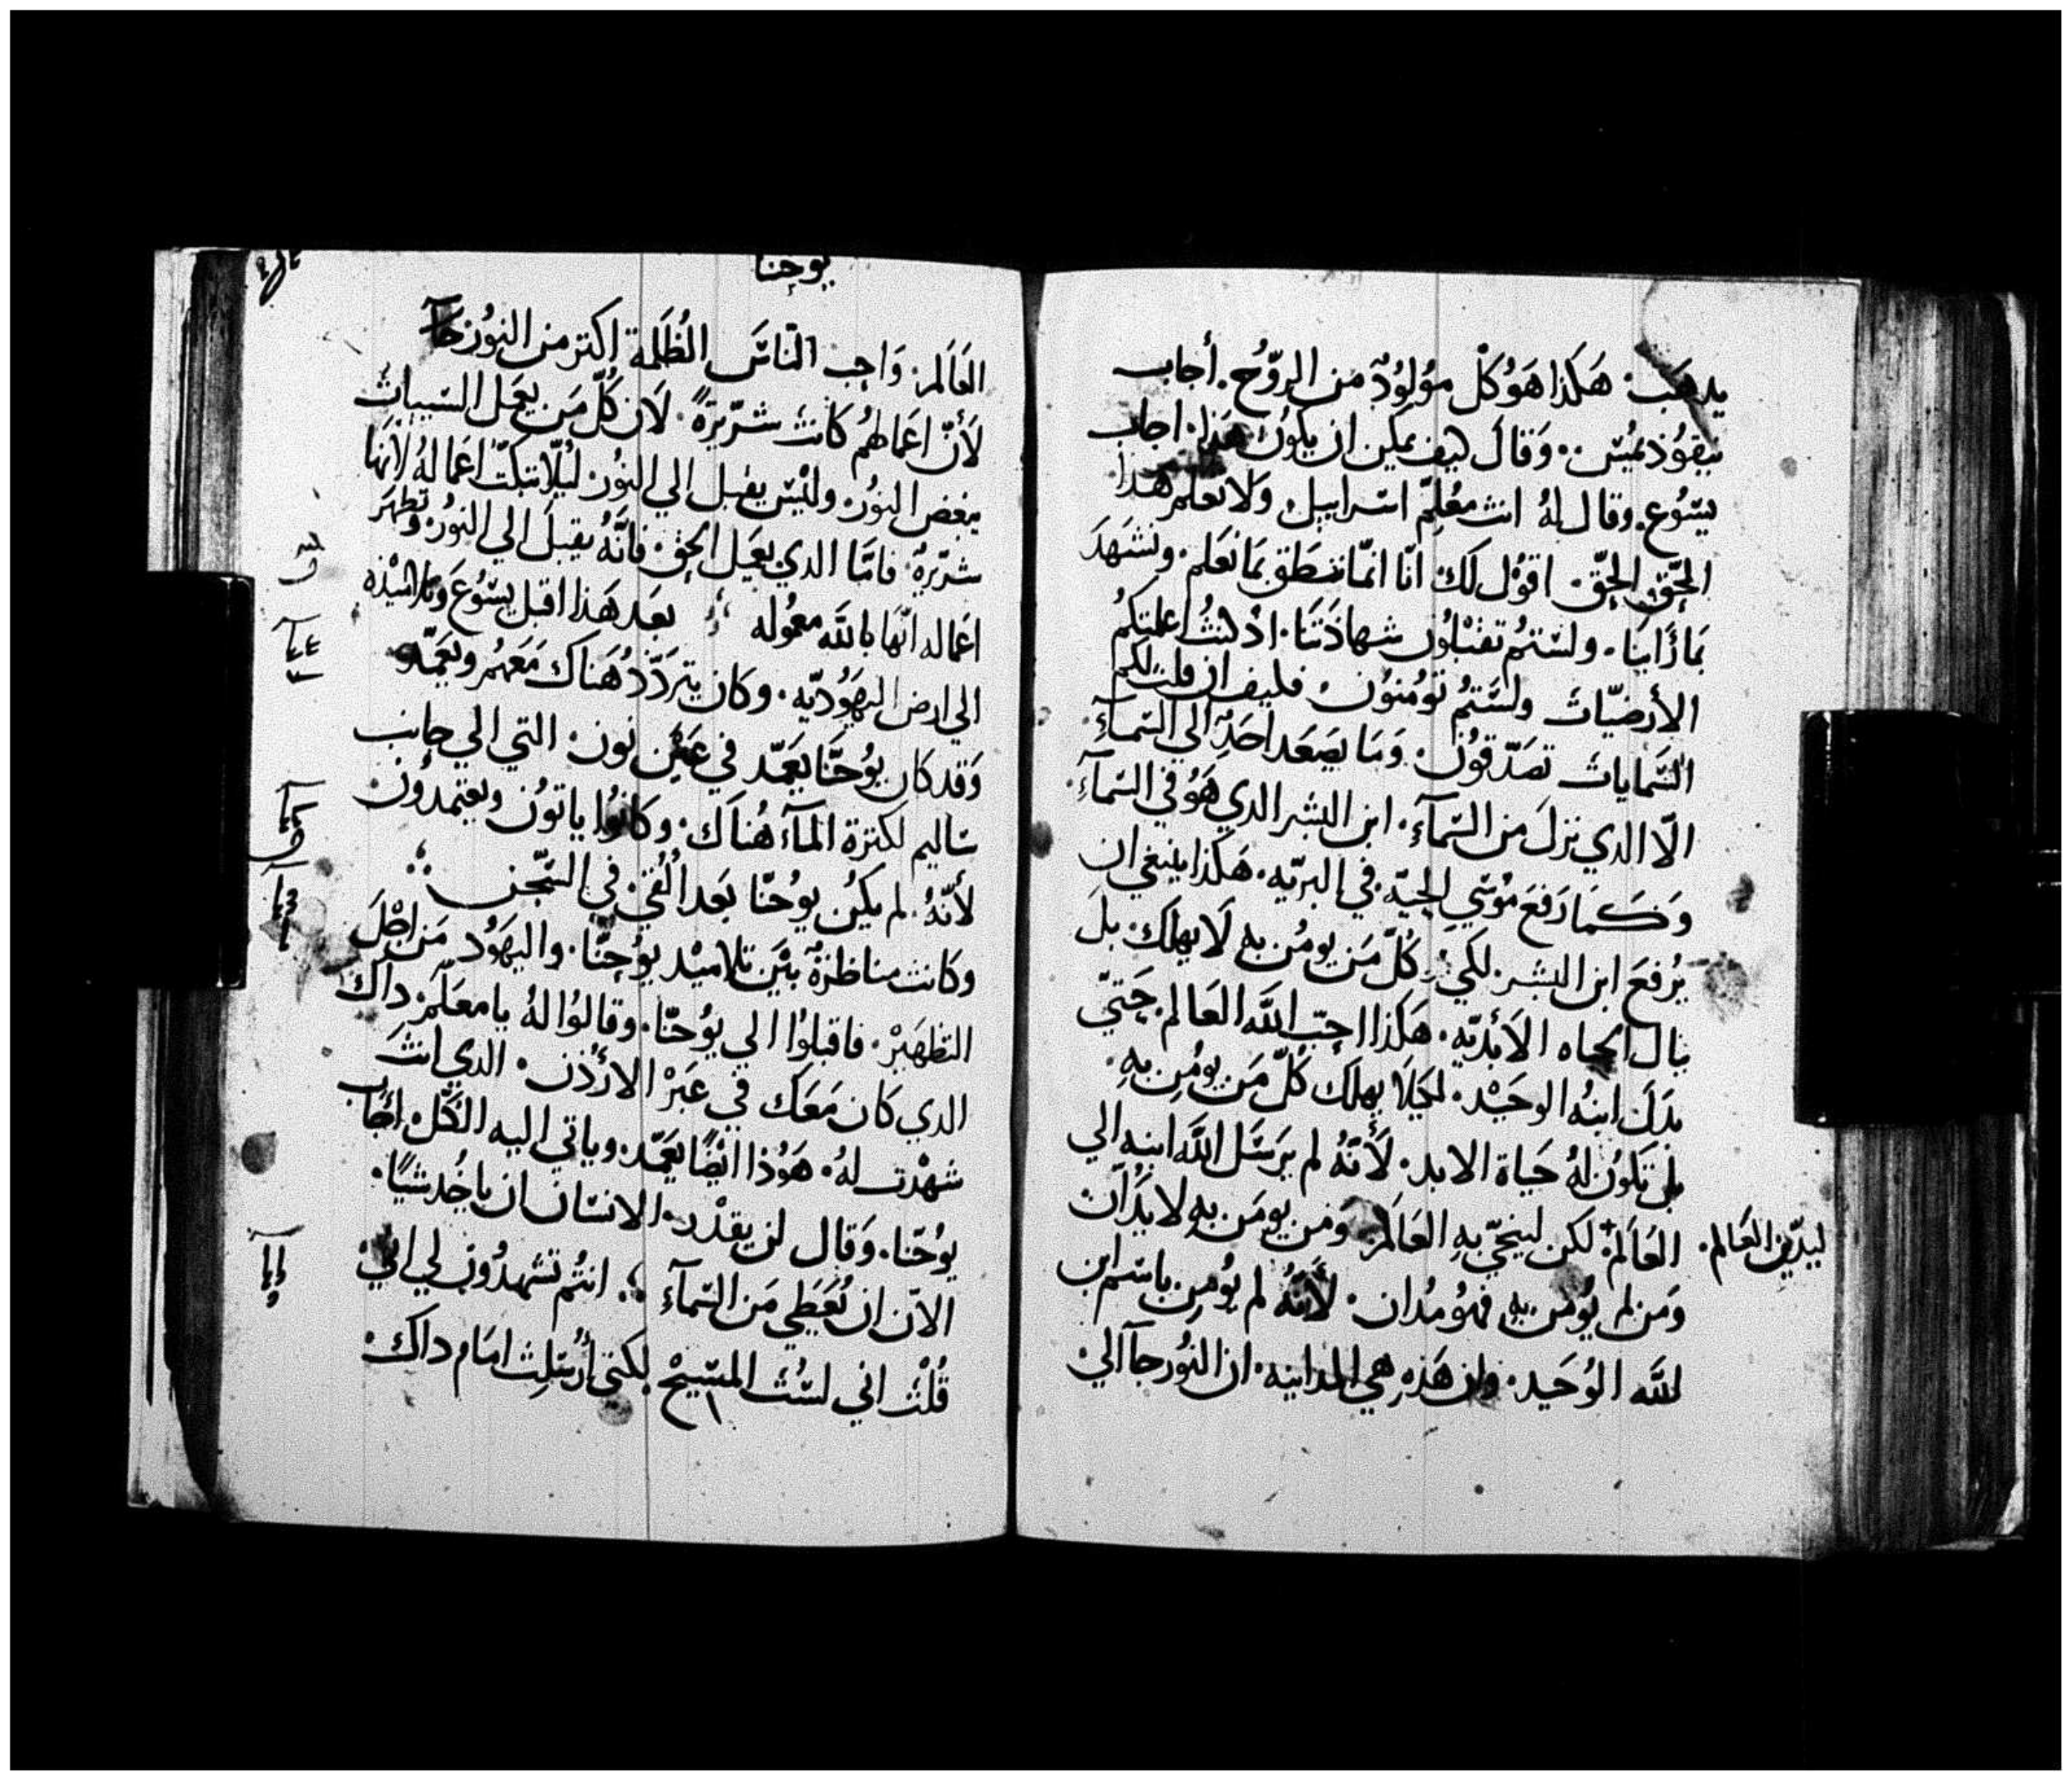 يدهَب. هَكذا هَوُ كُلْ موُلوُدٌ من الروُّح. أجاب
نيقوُذيمُس. وَقالَ كيف يمكن ان يكوُن هَذا. اجاب
يسُوع. وقال لهُ انت معُلمِّ اسراييل ولا تعلم هَذا
الحَّق الحِقّ اقوُل لكَ انّا انمّا ننطَق بمَا نَعلم. ونَشهَدَ
بمَا رَأينَا. ولسّتمُ تقبْلوُن شهادَتنَا. اذ كنتُ اعلمتكُم
الأرضيّاتَ ولسَّتمُ تؤمنوُن. فكيف ان قلت لكم
السَّماياتَ تصَدّقوُن. وَمَا يصَعَد احَدٌ الي السّمآءِ
الّا الدي نزلَ من السّمآءِ. ابن البشر الدي هَوُ في السّمآءِ.
وَكَمَا رَفعَ موُسَي الحِيّة. في البريّه. هَكذا ينبغي ان
يُرفعَ ابن البشر لكي كُلّ مَن يومُن بهِ لَا يهلكَ. بلَ
ينال الحياه الأبديّه. هَكذا احبّ اللَه العَالم. حَتيّ
بدَلَ ابنهُ الوحَيْد. لكَيلَا يهلك كلّ مَن يومُن بهِ.
بل تكوُن لهُ حَياة الابد. لأَنهُ لم يَرسَل اللَه ابنه الي
العَالمَ. لكن لينجيّ بهِ العَالمَ وَمن يومَن بهِ لا يدُان
ليدّين العَالم.
وَمَن لم يُومَن بهِ فهوُ مدُان. لأَنهُ لم يوُمن باسم ابن
اللَه الوُحَيد. وان هَذهِ هي المداينه. ان النوُر جآ الي
يوحنا
العَالمَ. وَاحب النّاسَ الظُلَمة اكتر من النوُر
لأَنّ اعَمالهمُ كانتَ شرّيرَةً. لَان كُلّ مَن يعَمل السّيياتَ
يبغض النوُر. وليْس يقبل الي النوُر ليُلّا تبكتّ اعَمالهُ لأَنهَا
شرّيرهٌ. فامَّا الدي يعَمل الحق. فانَّهُ يقبلَ الي النوُر. وتظهرَ
اعَماله انّهَا باللَه معموُله بعَد هَذا اقبل يسُّوعَ وتلاميْذه
الي ارض اليهَوُديّه. وكان يتردّد هَناك مَعَهمُ ويعَمّد
وَقد كان يوُحَنّا يعَمّد في عَين نون. التي الي جانب
سَاليم لكترة المآء هُناكَ. وكانوُا ياتوُن ويعَتمدوُن
لأَنّهُ. لم يكنُ يوُحَنّا بعَد الُقي في السّجن
وكانت مناظرةٌ بيَن تلاميْد يوُحِنّا. واليهَوُد من اجْلَ
التطهَير. فاقبلوُا الي يوُحَنّا. وقالوُا لهُ يا معَلّم. داك
الدي كان مَعَك في عَبَر الارُدُن. الدي انتَ
شهْدت لهُ. هَوُذا ايضًا يعَمّد. وياتي اليه الكَّل. أجَاب
يوُحَنّا. وَقال لن يقدْر. الانسَان ان ياخُد شيًا.
الاّن ان يُعَطي مَن السّمآءِ انتمُ تشهدوُن لي انيّ
قلُتْ اني لستُ المسّيحْ لكنيّ أُرسّلتِ امَام داكَ